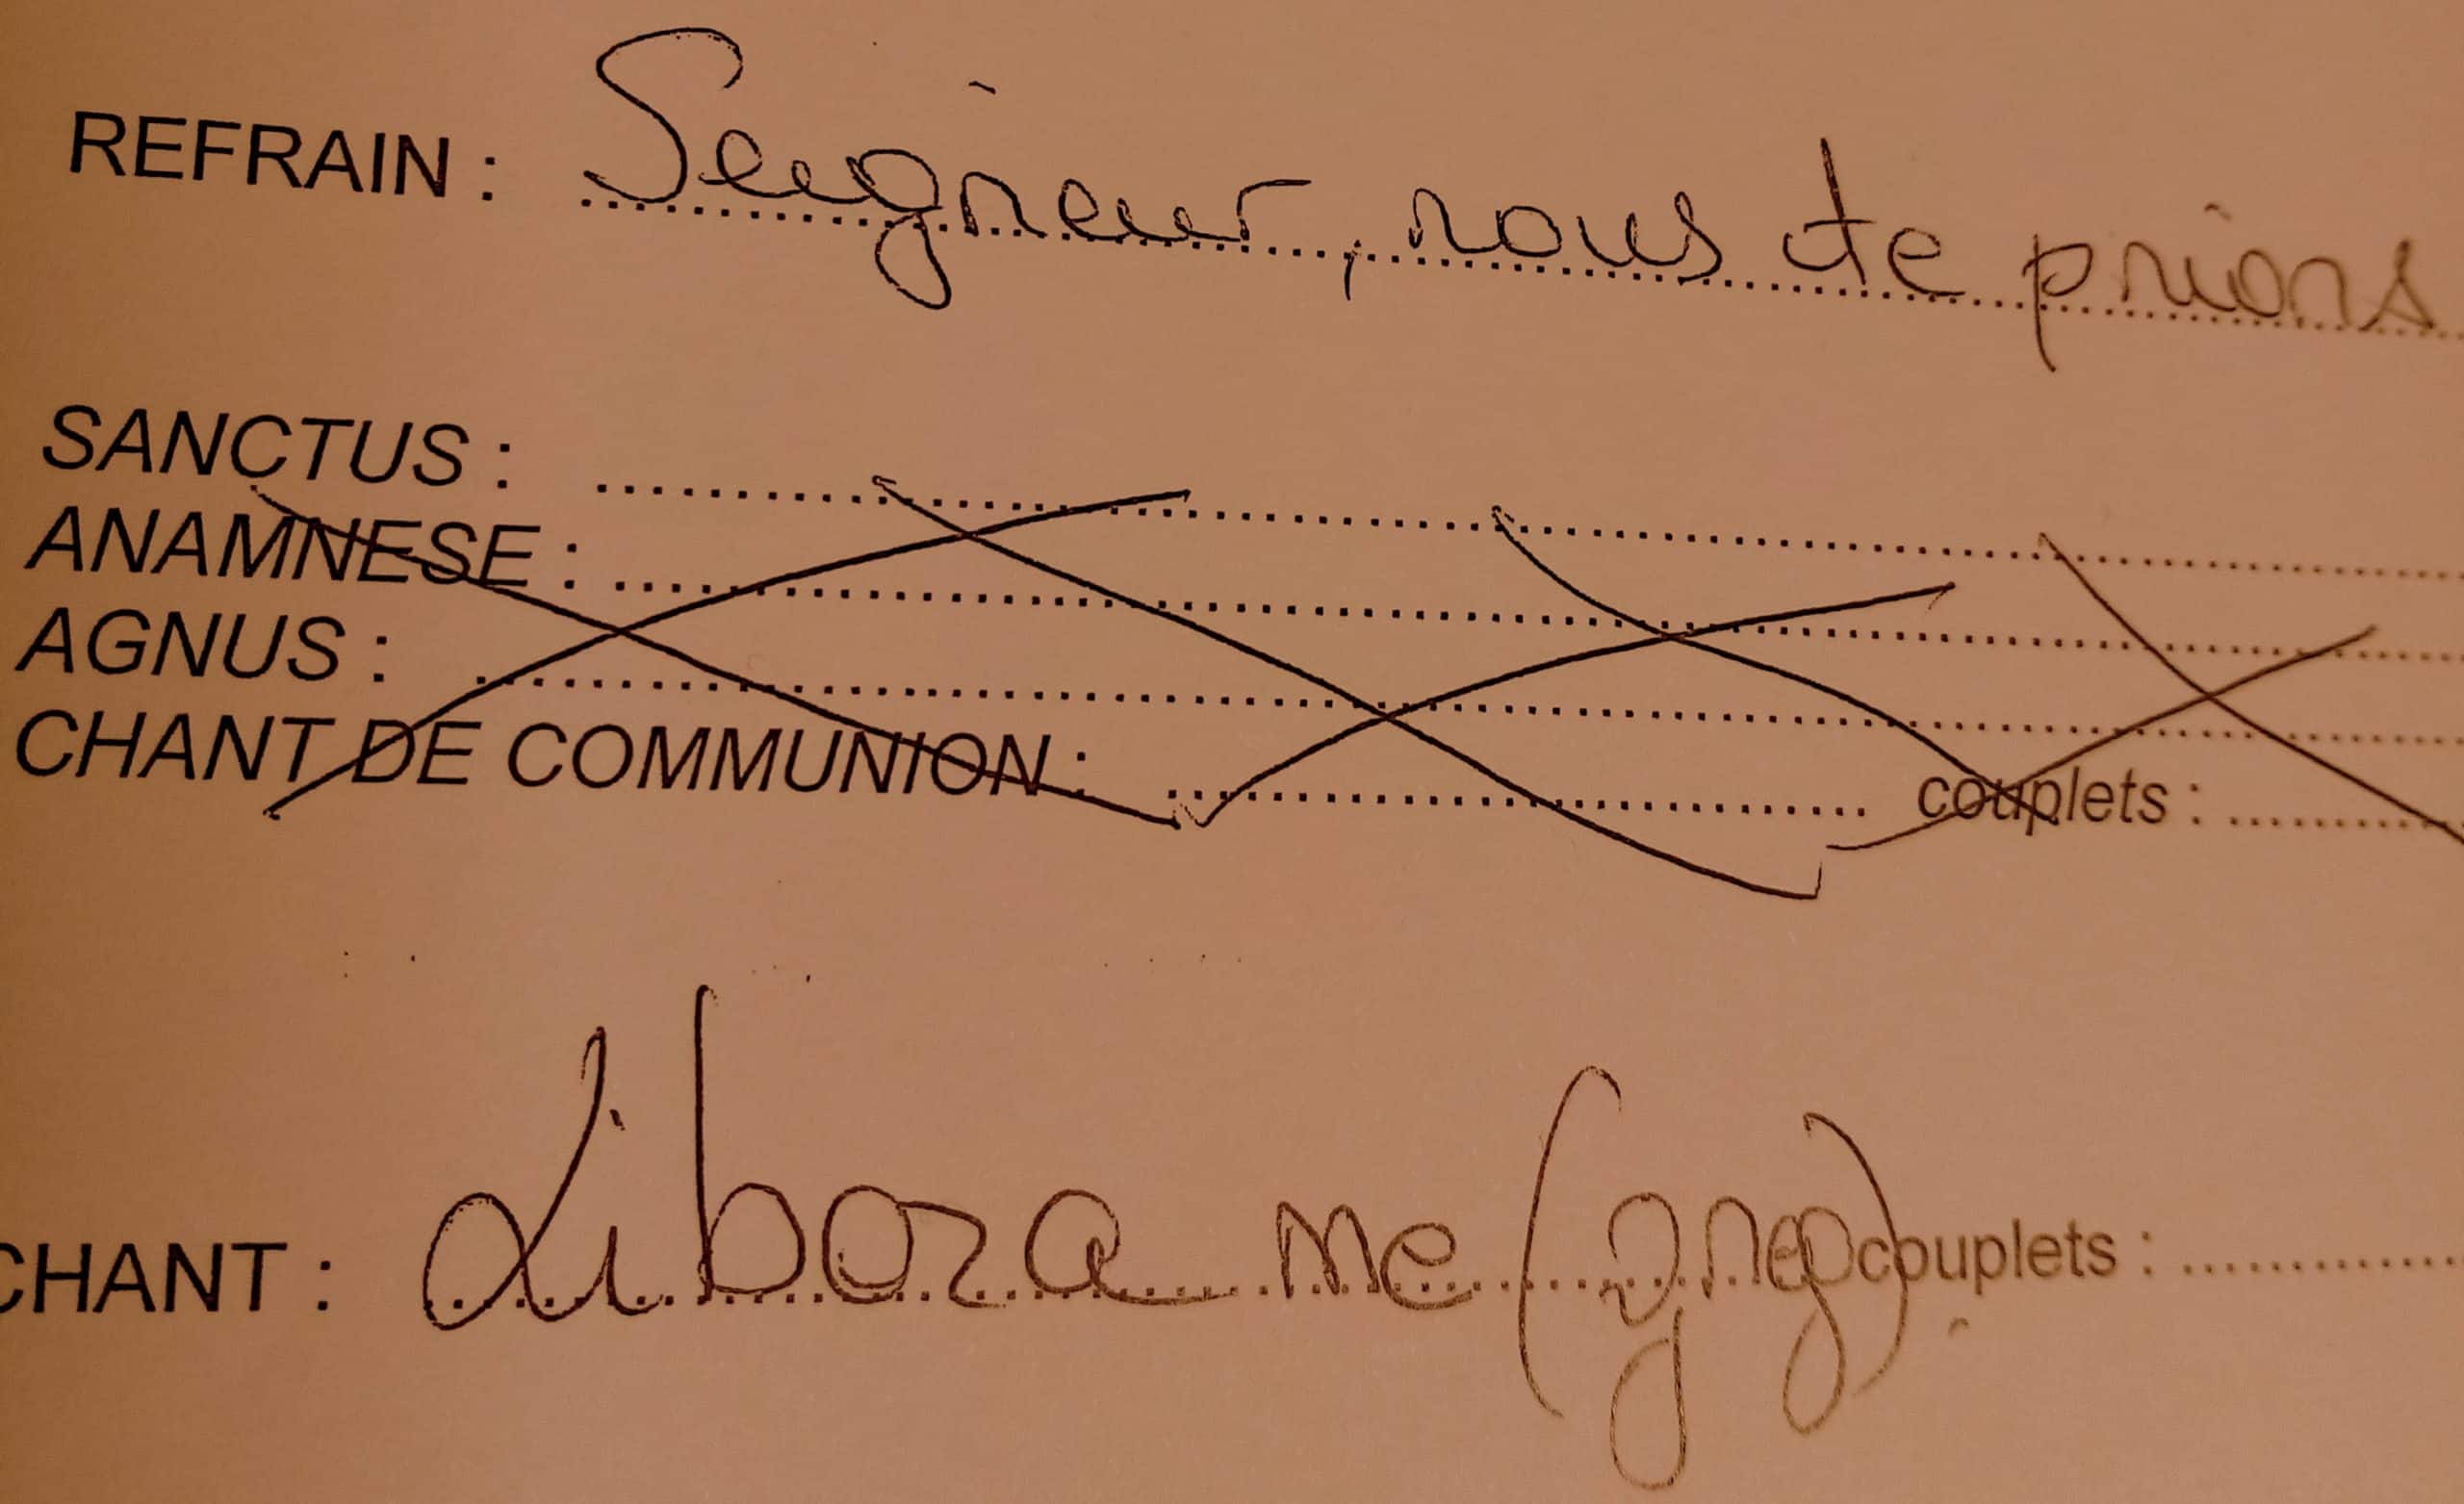 REFRAIN : Seigneur, nous te prions
SANCTUS :
ANAMNESE :
AGNUS :
CHANT DE COMMUNION : couplets :
CHANT : Libora me (greg) couplets :